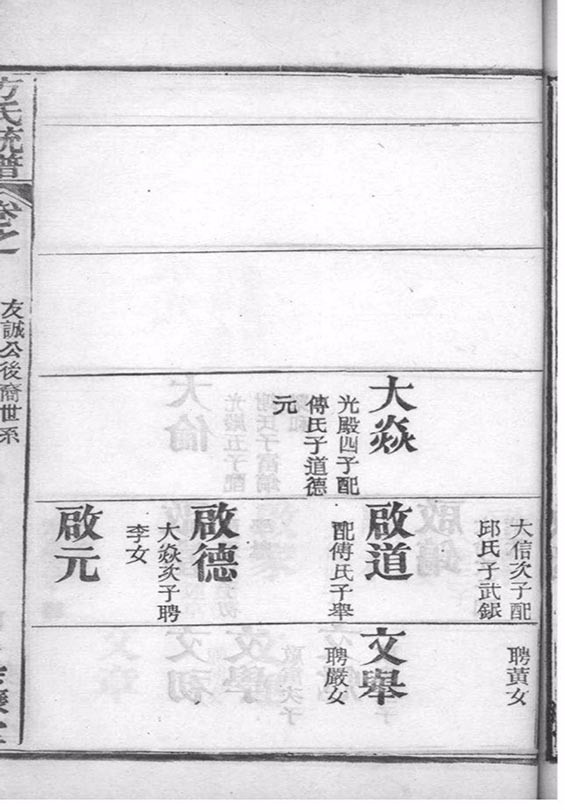 方氏統譜
卷之
友誠公後裔世系
大焱
光殿四子配
傅氏子道德
元
大信次子配
邱氏子武銀
啟道
配傅氏子舉
啟德
大焱次子聘
李女
啟元
聘黃女
文舉
聘嚴女